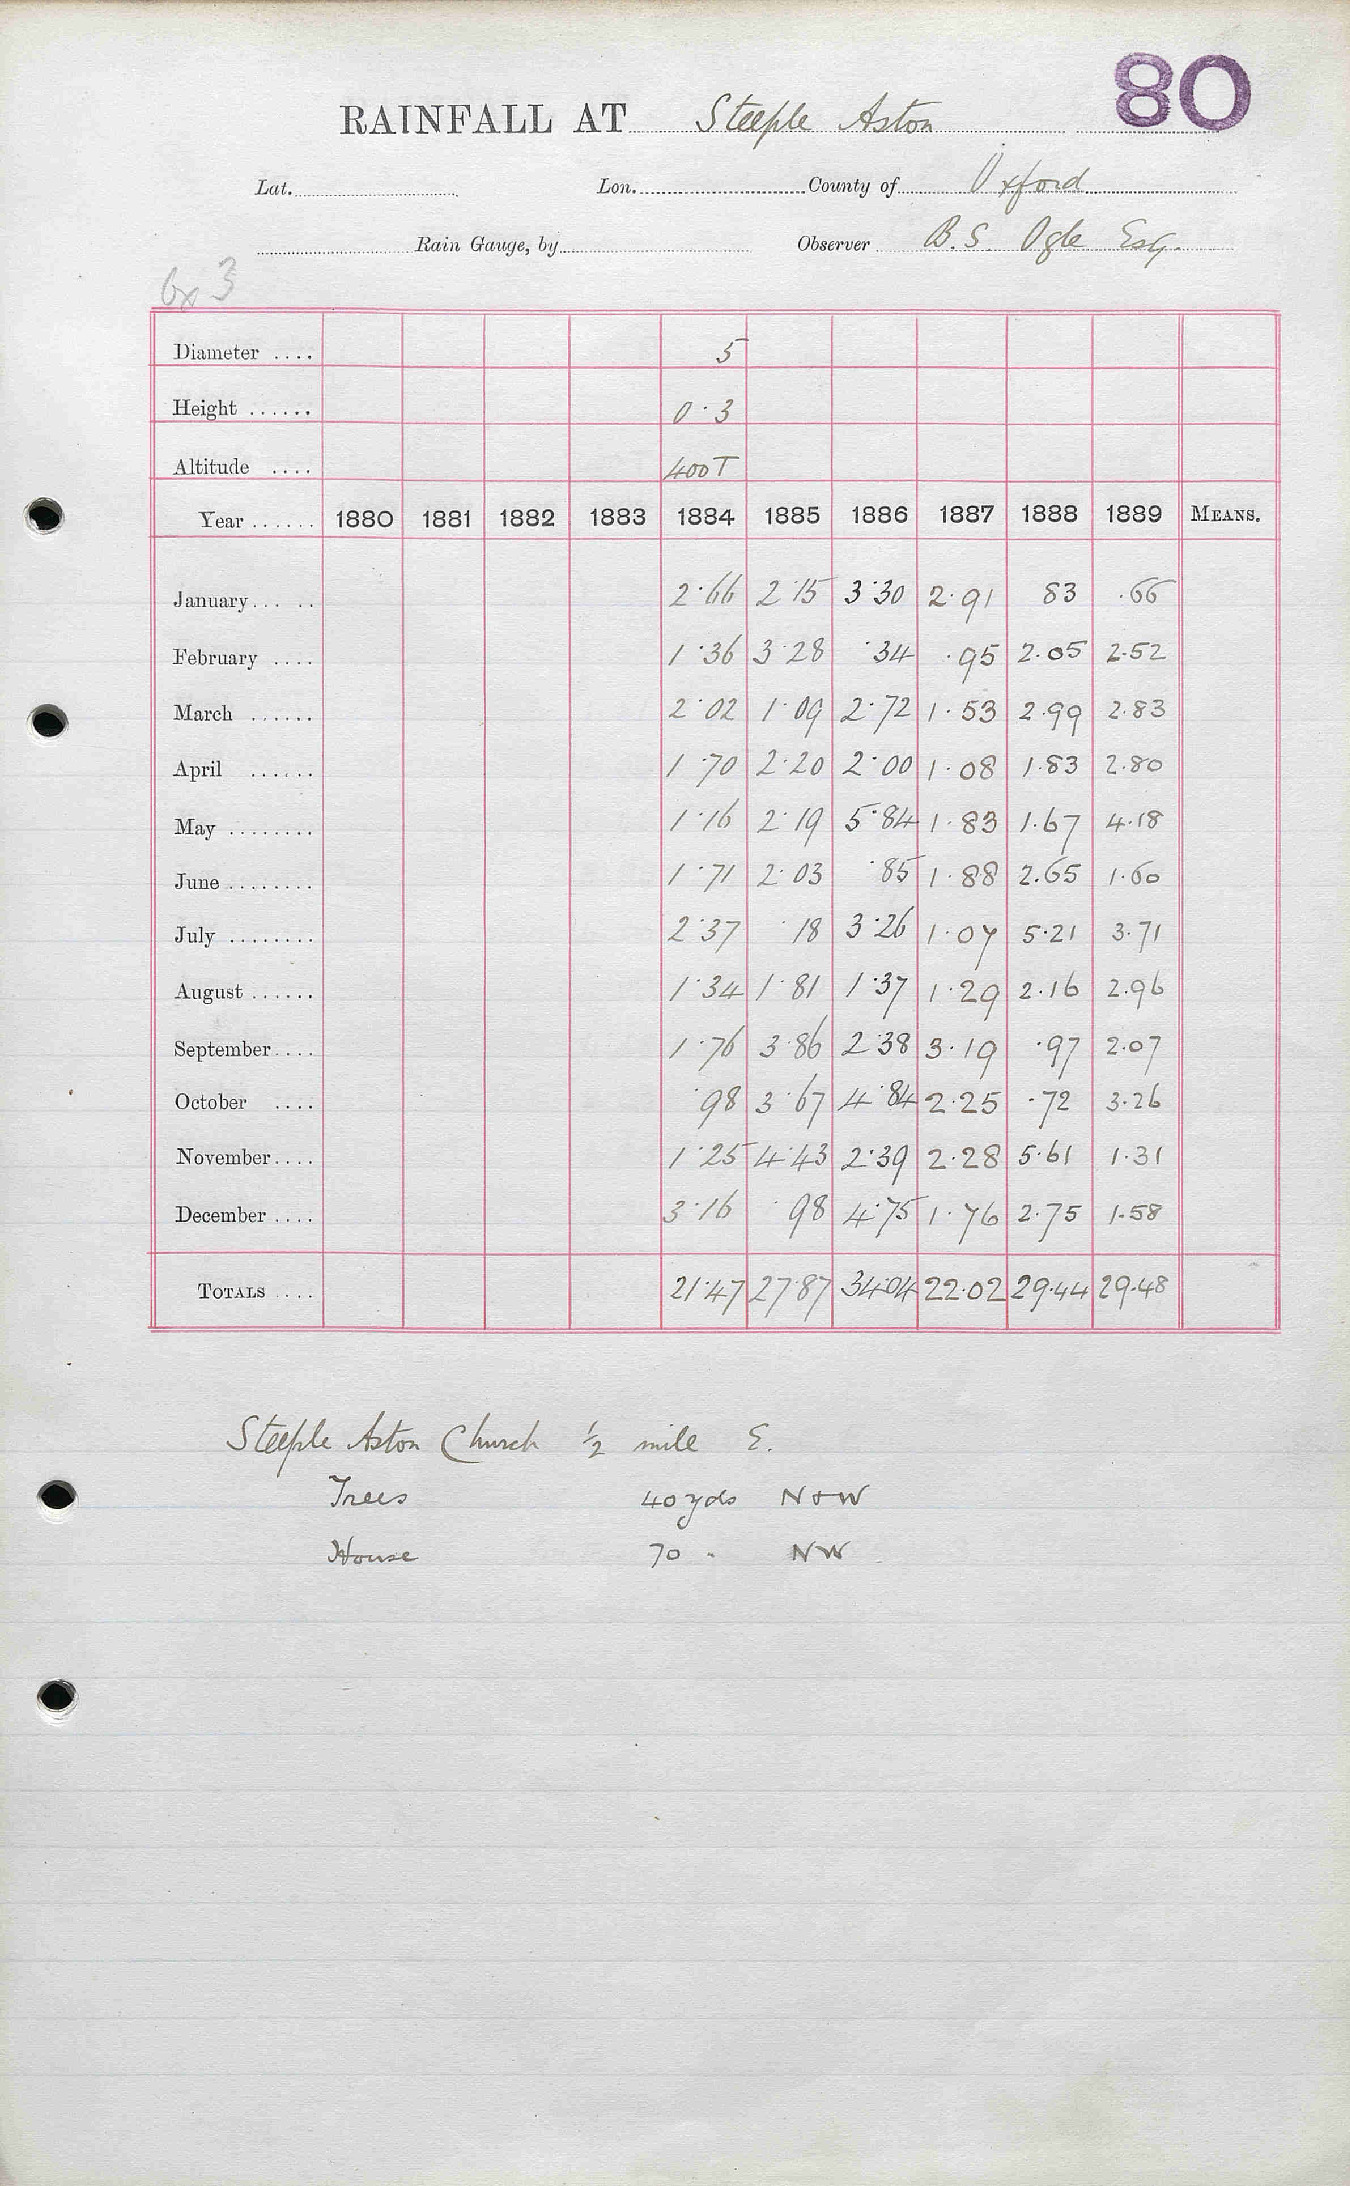 80
RAINFALL AT Steeple Aston
Lat. Lon. County of Oxford
Rain Gauge, by Observer B.S. Ogle Esq.
Ox 3
Diameter .... 5
Height ...... 0·3
Altitude .... 400T
Year ...... 1880 1881 1882 1883 1884 1885 1886 1887 1888 1889 MEANS.
January... .. 2·66 2·15 3·30 2·91 83 ·66
February .... 1·36 3 28 ·34 ·95 2·05 2·52
March ...... 2·02 1·09 2·72 1·53 2·99 2·83
April ...... 1·70 2·20 2·00 1·08 1·83 2·80
May ........ 1·16 2·19 5·84 1·83 1·67 4·18
June ........ 1·71 2·03 ·85 1·88 2·65 1·60
July ........ 2·37 ·18 3·26 1·07 5·21 3·71
August ...... 1·34 1·81 1·37 1·29 2·16 2·96
September.... 1·76 3·86 2·38 3·19 ·97 2·07
October .... ·98 3·67 4·84 2·25 ·72 3·26
November.... 1·25 4·43 2·39 2·28 5·61 1·31
December .... 3·16 ·98 4·75 1·76 2·75 1·58
TOTALS .... 21·47 27·87 34·04 22·02 29·44 29·48
Steeple Aston Church ½ mile E.
Trees 40 yds N+W
House 70 " NW